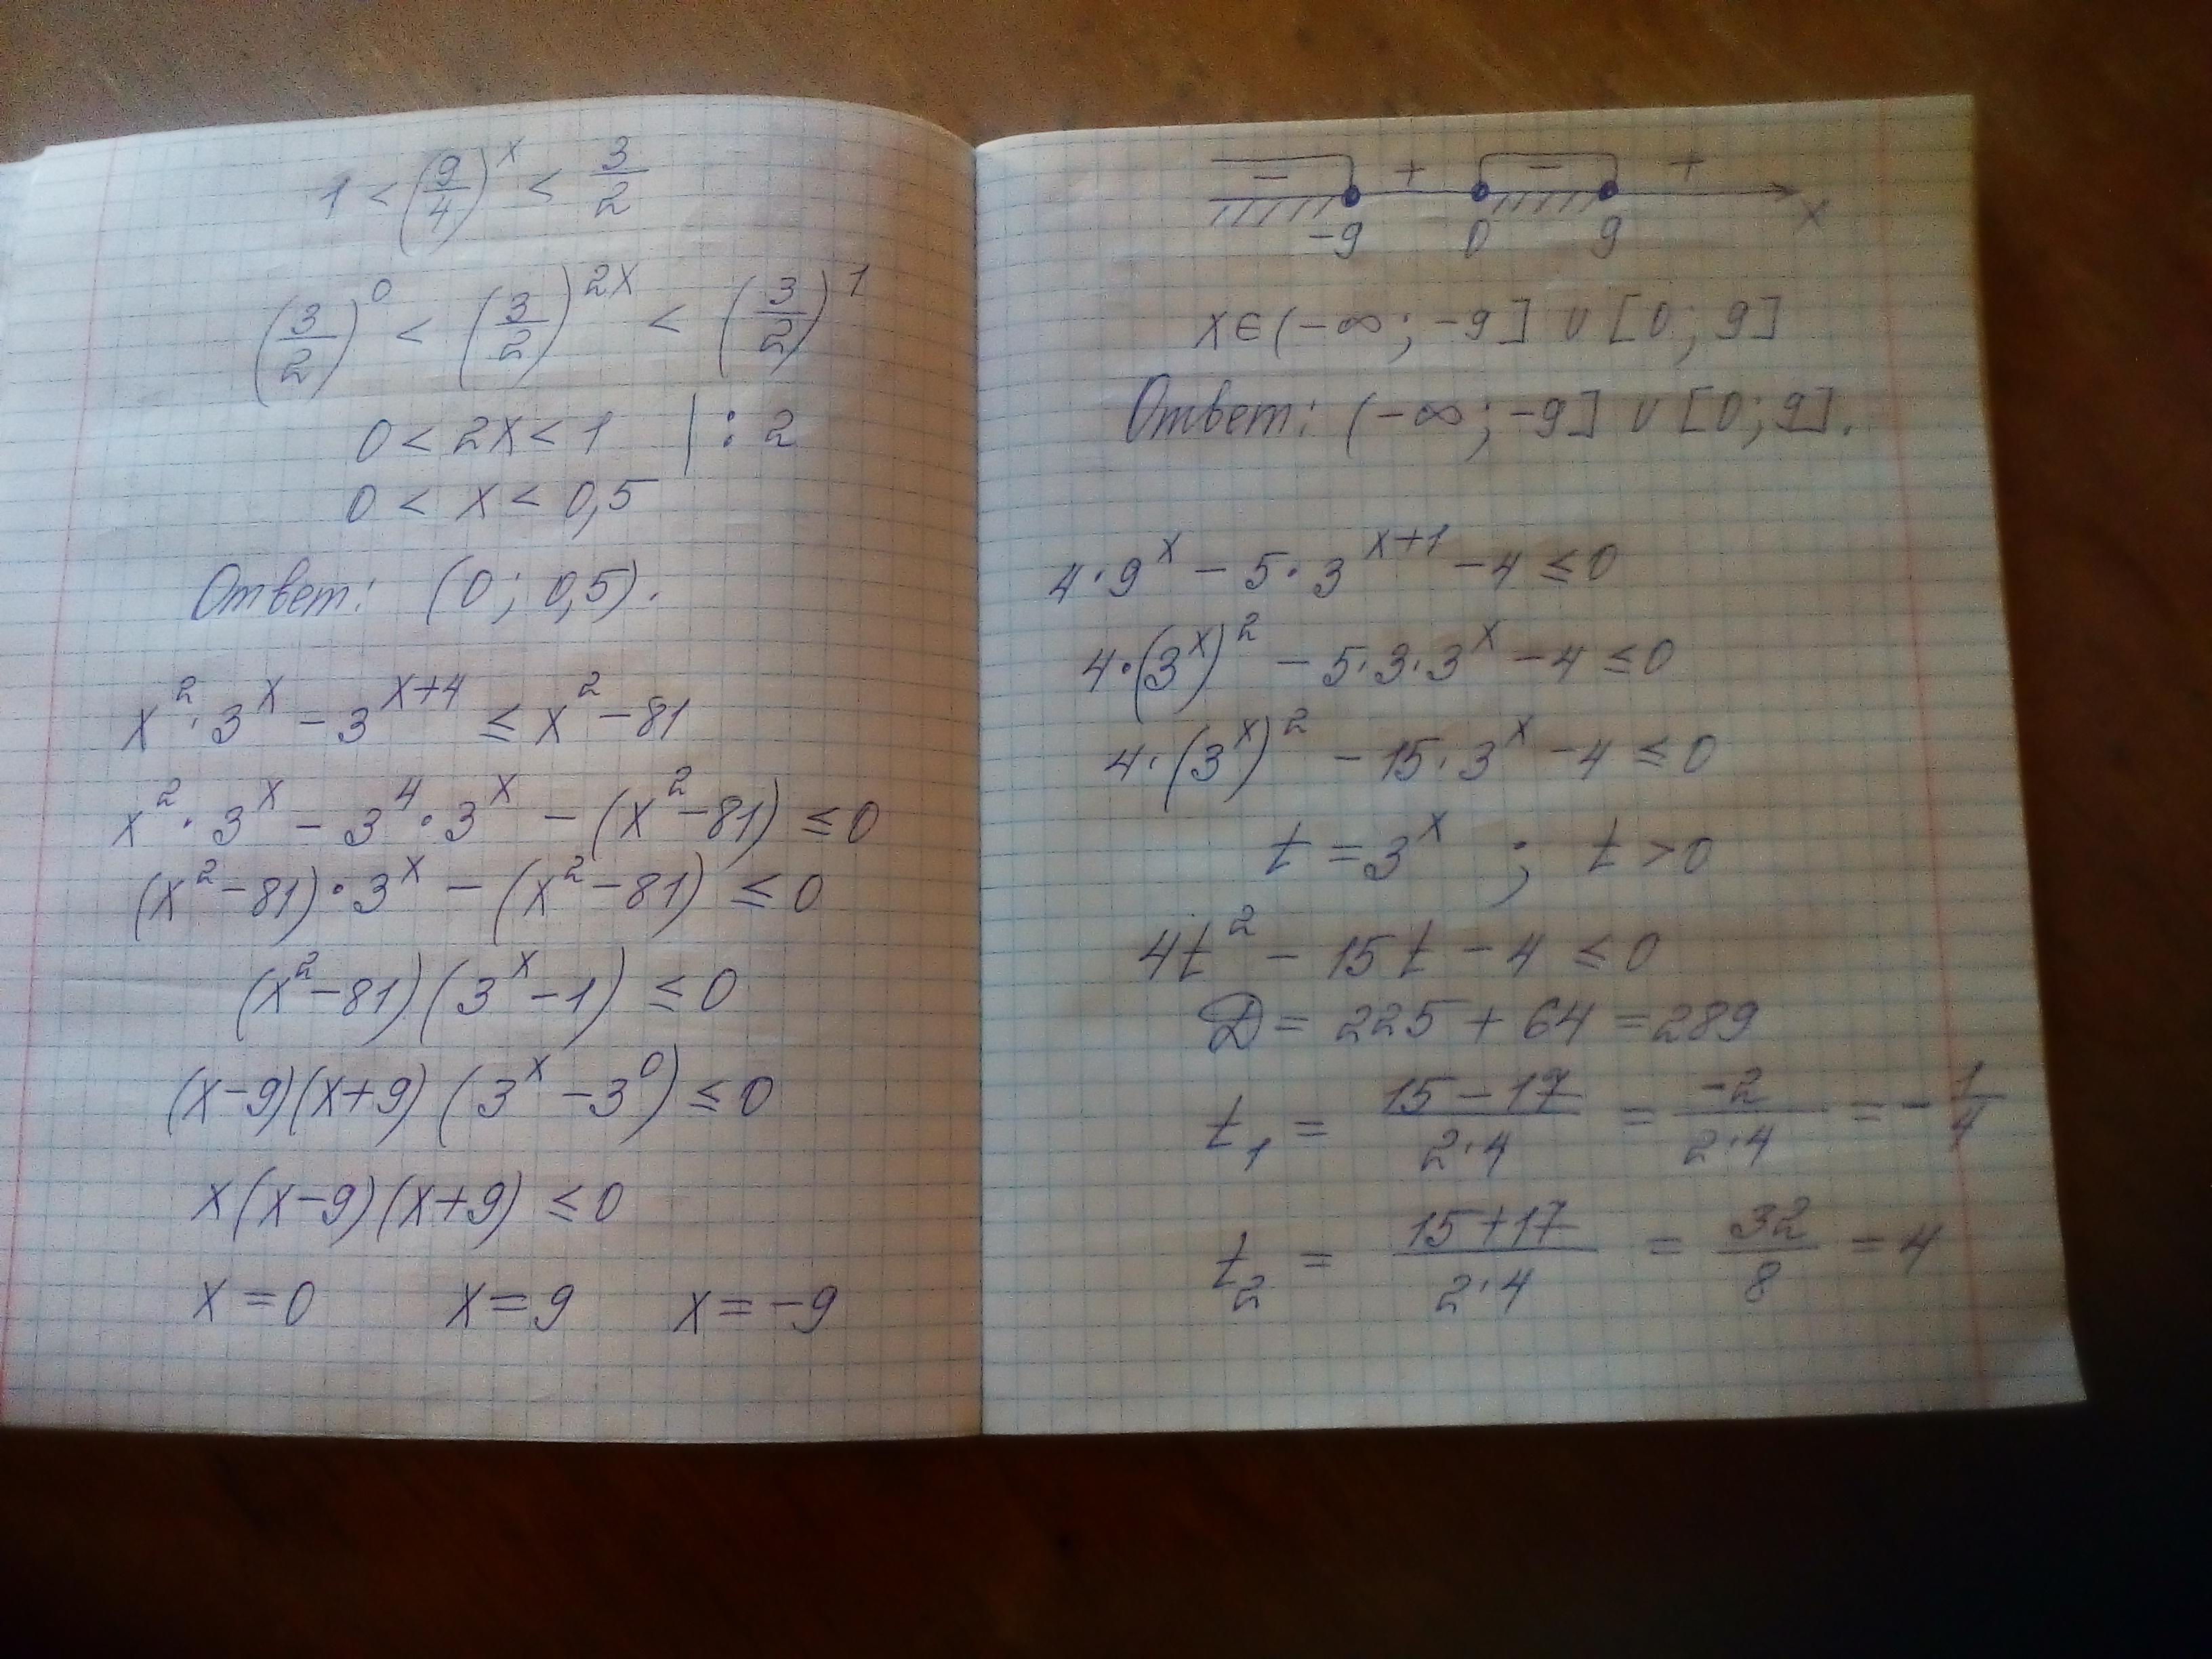 1 < (9/4)^x < 3/2
(3/2)^0 < (3/2)^2x < (3/2)^1
0 < 2x < 1 | : 2
0 < x < 0,5
Ответ: (0; 0,5).
x^2 · 3^x − 3^(x+4) ≤ x^2 − 81
x^2 · 3^x − 3^4 · 3^x − (x^2 − 81) ≤ 0
(x^2 − 81) · 3^x − (x^2 − 81) ≤ 0
(x^2 − 81)(3^x − 1) ≤ 0
(x − 9)(x + 9)(3^x − 3^0) ≤ 0
x(x − 9)(x + 9) ≤ 0
x = 0 x = 9 x = −9
− + − +
−9 0 9 x
x ∈ (−∞; −9] ∪ [0; 9]
Ответ: (−∞; −9] ∪ [0; 9].
4 · 9^x − 5 · 3^(x+1) − 4 ≤ 0
4 · (3^x)^2 − 5 · 3 · 3^x − 4 ≤ 0
4 · (3^x)^2 − 15 · 3^x − 4 ≤ 0
t = 3^x ; t > 0
4t^2 − 15t − 4 ≤ 0
D = 225 + 64 = 289
t₁ = (15 − 17)/(2·4) = −2/(2·4) = −1/4
t₂ = (15 + 17)/(2·4) = 32/8 = 4